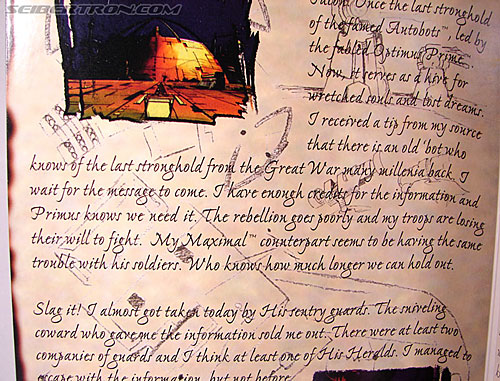 SEIBERTRON.COM
Once the last stronghold
of the famed Autobots™, led by
the fabled Optimus Prime.
Now, it serves as a hive for
wretched souls and lost dreams.
I received a tip from my source
that there is an old 'bot who
knows of the last stronghold from the Great War many millenia back. I
wait for the message to come. I have enough credits for the information and
Primus knows we need it. The rebellion goes poorly and my troops are losing
their will to fight. My Maximal™ counterpart seems to be having the same
trouble with his soldiers. Who knows how much longer we can hold out.
Slag it! I almost got taken today by His sentry guards. The sniveling
coward who gave me the information sold me out. There were at least two
companies of guards and I think at least one of His Heralds. I managed to
escape with the information, but not before